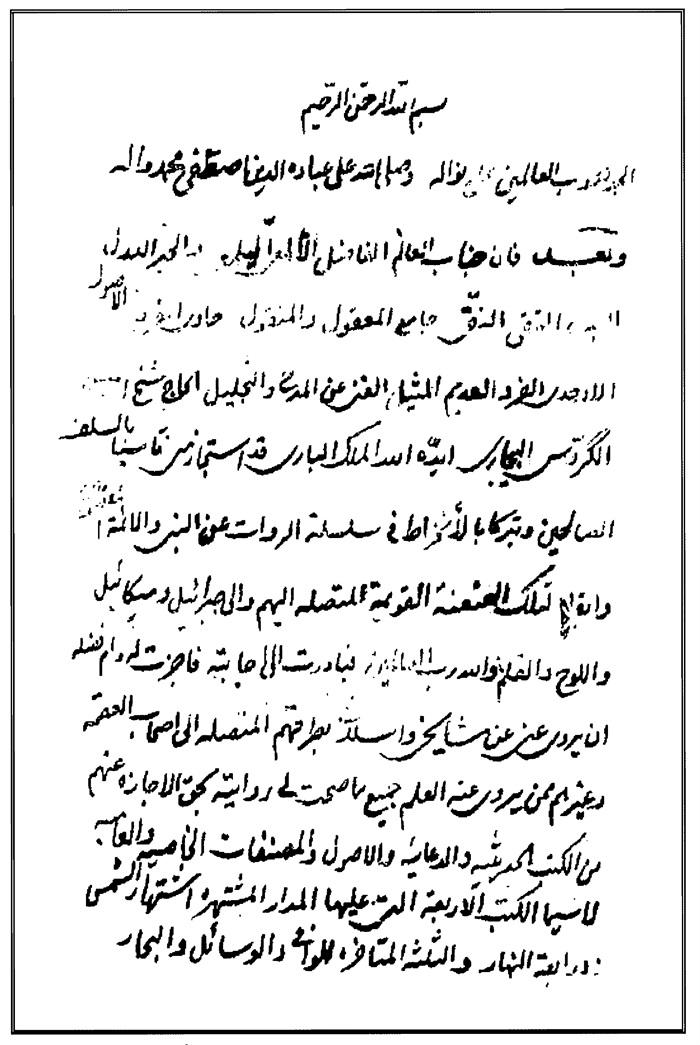 بسم الله الرحمن الرحيم
الحمد لله رب العالمين على نواله وصلى الله على عباده الذين اصطفى محمد واله
وبعد فان جناب العالم الفاضل الالمعي الجليل الحبر البدل
التقي النقي جامع المعقول والمنقول حاوي الفروع الاصول
الاوحدي الفرد العديم المثيل الغني عن المدح والتجليل الحاج شيخ
البخاري ايده الله الملك الباري قد استجازني تاسيا بالسلف
الصالحين وتبركا بالانخراط في سلسلة الروات عن النبي والائمة
تلك العنعنة القويمة المتصله اليهم والى جبرائيل وميكائيل
واللوح والقلم والله رب العالمين فبادرت الى اجابته فاجزت له دام فضله
ان يروي عني عن مشايخي واسلافي بطرقهم المتصله الى اصحاب العصمه
وغيرهم ممن يروى عنه العلم جميع ما صحت لي روايته بحق الاجازه عنهم
من الكتب الحديثيه والدعائيه والاصول والمصنفات الخاصيه والعاميه
لا سيما الكتب الاربعة التي عليها المدار المشتهره اشتهار الشمس
في رابعة النهار والثلثه المتاخره الوافي والوسائل والبحار